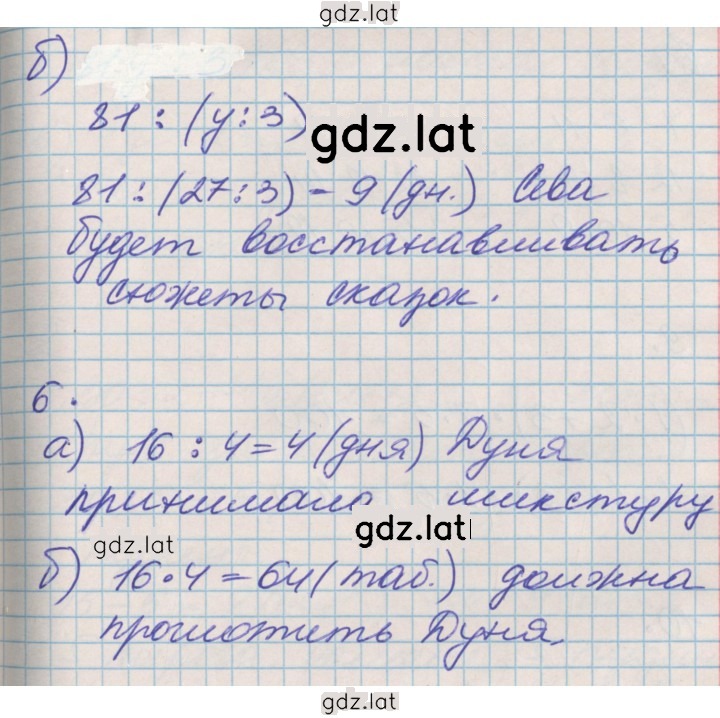 gdz.lat
б)
81 : (у : 3)
gdz.lat
81 : (27 : 3) = 9 (дн.) Сева
будет восстанавливать
сюжеты сказок.
6.
а) 16 : 4 = 4 (дня) Дуня
принимала микстуру
gdz.lat
gdz.lat
б) 16 · 4 = 64 (таб.) должна
проглотить Дуня.
gdz.lat